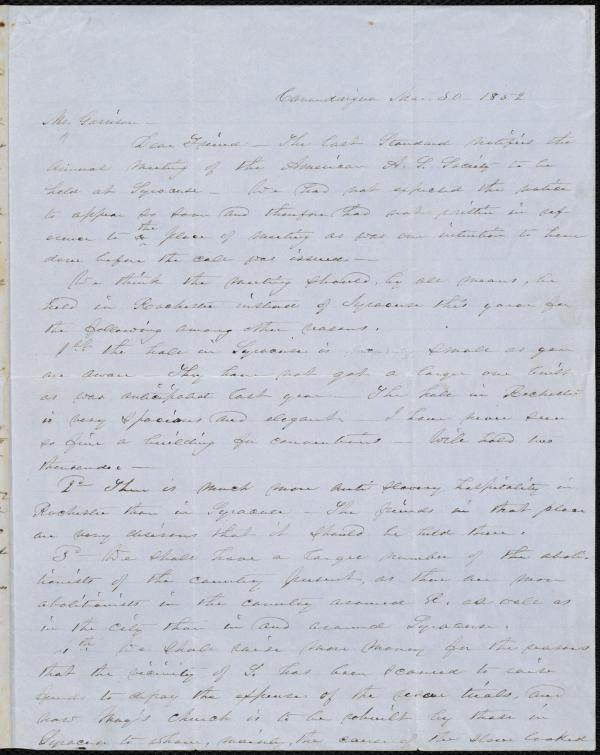 Canandaigua Mar. 30 - 1852
Mr. Garrison -
Dear Friend - The last Standard notifies the
Annual Meeting of the American A. S. Society to be
held at Syracuse - We had not expected the notice
to appear so soon and therefore had not written in ref
erence to the place of meeting as was our intention to have
done before the call was issued -
We think the meeting should, by all means, be
held in Rochester instead of Syracuse this year for
the following among other reasons.
1st the hall in Syracuse is small as you
are aware They have not got a larger one built
as was anticipated last year - The hall in Rochester
is very spacious and elegant - I have never seen
so fine a building for conventions - Will hold two
thousands -
2d There is much more anti slavery hospitality in
Rochester than in Syracuse - The friends in that place
are very desirous that it should be held there.
3d We shall have a larger number of the aboli-
tionists of the country present, as there are more
abolitionists in the country around R. as well as
in the city than in and around Syracuse.
4th We shall raise more money for the reasons
that the vicinity of S. has been scoured to raise
funds to defray the expense of the rescue trials, and
now May's church is to be rebuilt by those in
Syracuse to whom, mainly, the cause of the slave looked